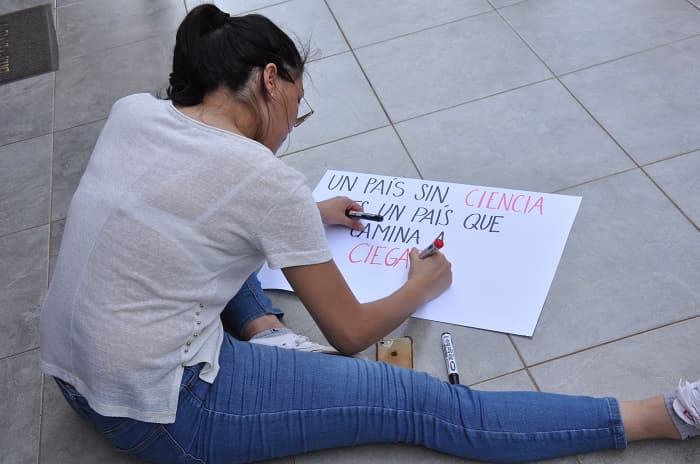 UN PAÍS SIN CIENCIA
ES UN PAÍS QUE
CAMINA A
CIEGA